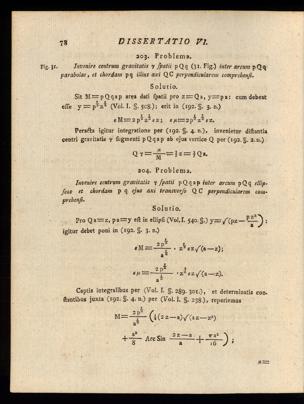 78 DISSERTATIO VI.
203. Problema.
Fig. 31. Invenire centrum gravitatis γ spatii pQq (31. Fig.) inter arcum pQq
parabolae, et chordam pq illius axi QC perpendicularem comprehensi.
Solutio.
Sit M=pQqap area dati spatii pro z=Qa, y=pa: cum debeat
esse y=p^½z^½ (Vol. I. §. 508.); erit in (192. §. 3. n.)
εM=2p^½z^½εz; εμ=2p^½z^¾εz.
Peracta igitur integratione per (192. §. 4. n.), invenietur distantia
centri gravitatis γ segmenti pQqap ab ejus vertice Q per (192. §. 2. n.)
Qγ=μ/M=⅗z=⅗Qa.
204. Problema.
Invenire centrum gravitatis γ spatii pQqap inter arcum pQq ellip-
seos et chordam pq ejus axi transverso QC perpendicularem com-
prehensi.
Solutio.
Pro Qa=z, pa=y est in ellipsi (Vol. I. §40. §.) y=√(pz−pz²/a);
igitur debet poni in (192. §. 3. n.)
εM=2p^½/a^½ · z^½εz√(a−z);
εμ=2p^½/a^½ · z^¾εz√(a−z).
Captis integralibus per (Vol. I. §. 289. 301.), et determinatis con-
stantibus juxta (192. §. 4. n.) per (Vol. I. §. 238.), reperiemus
M=2p^½/a^½ (¼(2z−a)√(az−z²)
+a²/8 Arc Sin 2z−a/a+πa²/16);